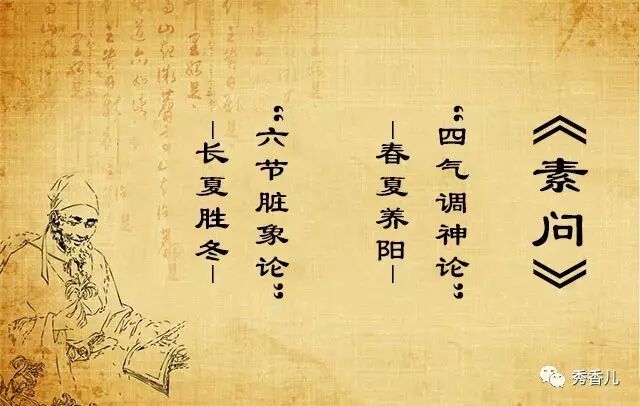 《素问》
“四气调神论”
—春夏养阳—
“六节脏象论”
—长夏胜冬—
秀香儿